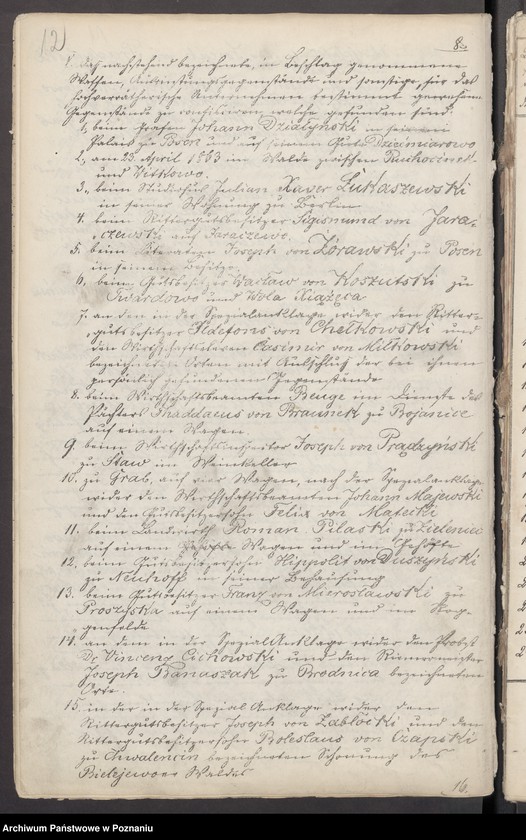 12
8.
das nachstehend bezeichnete, in Beschlag genommene
Waffen, Ausrüstungsgegenstände und sonstige, für das
hochverrätherische Unternehmen bestimmt gewesene
Gegenstände zu confisciren, welche gefunden sind:
1, beim Grafen Johann Działyński in seinem
Palais zu Posen und auf seinem Gute
2, am 25. April 1863 im Walde zwischen
und Vitkowo.
3., beim Studiosus Julian Xaver Łukaszewski
in seiner Wohnung zu Berlin
4. beim Rittergutsbesitzer Sigismund von Jara-
czewski auf Jaraczewo.
5. beim Literaten Joseph von Żórawski zu Posen
in seinem Besitze.
6, beim Gutsbesitzer Wacław von Koszutski zu
Twardowo und Wola Xiążęca
7. an den in der Spezialanklage wider den Ritter-
gutsbesitzer Ildefons von Chełkowski und
den Wirthschaftseleven Casimir von Miłkowski
bezeichneten Orten mit Ausschluß der bei ihnen
persönlich gefundenen Gegenstände
8. beim Wirthschaftsbeamten Beuge im Dienste des
Pächters Thaddaeus von Braunek zu Bojanice
auf einem Wagen.
9. beim Wirthschafts Joseph von Prądzyński
zu Staw im Weinkeller
10. zu Grab, auf vier Wagen, nach der Spezialanklage
wider den Wirthschaftsbeamten Johann Majewski
und den Gutsbesitzersohn Felix von Matecki
11. beim Landwirth Roman Pilaski zu Zieleniec
auf einem Wagen und im Gehöfte
12. beim Gutsbesitzersohn Hippolit von Duszyński
zu Neuhoff in seiner Behausung
13. beim Gutsbesitzer Franz von Mierosławski zu
Proszyska auf einem Wagen und im Rog-
genfelde
14. an dem in der Spezial Anklage wider den Probst
Dr Vincenz Cichowski und den Riemermeister
Joseph Banaszak zu Brodnica bezeichneten
Orte.
15. in der in der Spezial Anklage wider den
Rittergutsbesitzer Joseph von Zabłocki und den
Rittergutsbesitzersohn Boleslaus von Czapski
zu Chwalencin bezeichneten Schonung des
Bielejewoer Waldes
16.
Archiwum Państwowe w Poznaniu